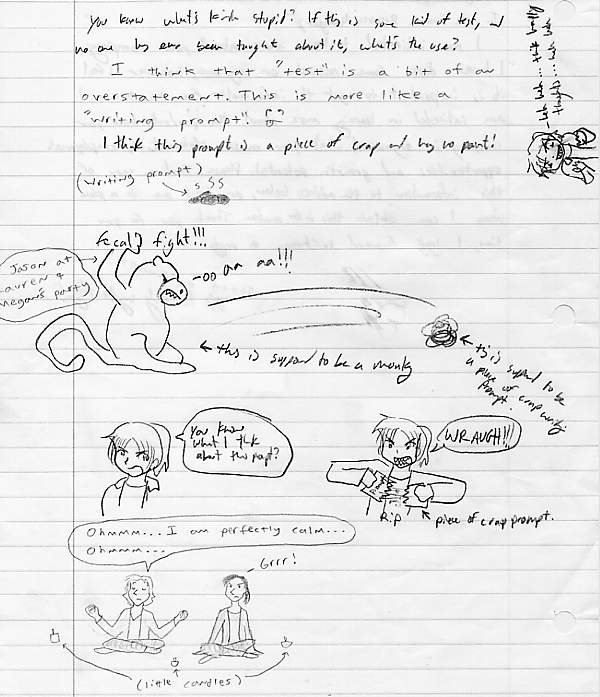 you know what's kinda stupid? If this is some kind of test, and
no one has ever been taught about it, what's the use?
I think that "test" is a bit of an
overstatement. This is more like a
"writing prompt".
I think this prompt is a piece of crap and has no point!
(writing prompt)
fecal fight!!!
Jason at
Lauren &
Megan's party
-oo aa aa!!!
← this is supposed to be a monkey
this is supposed to be
a piece of crap writing
prompt.
You know
what I think
about this prompt?
WRAUGH!!!
Rip
piece of crap prompt.
Ohmmm... I am perfectly calm...
Ohmmm...
Grrr!
(little candles)